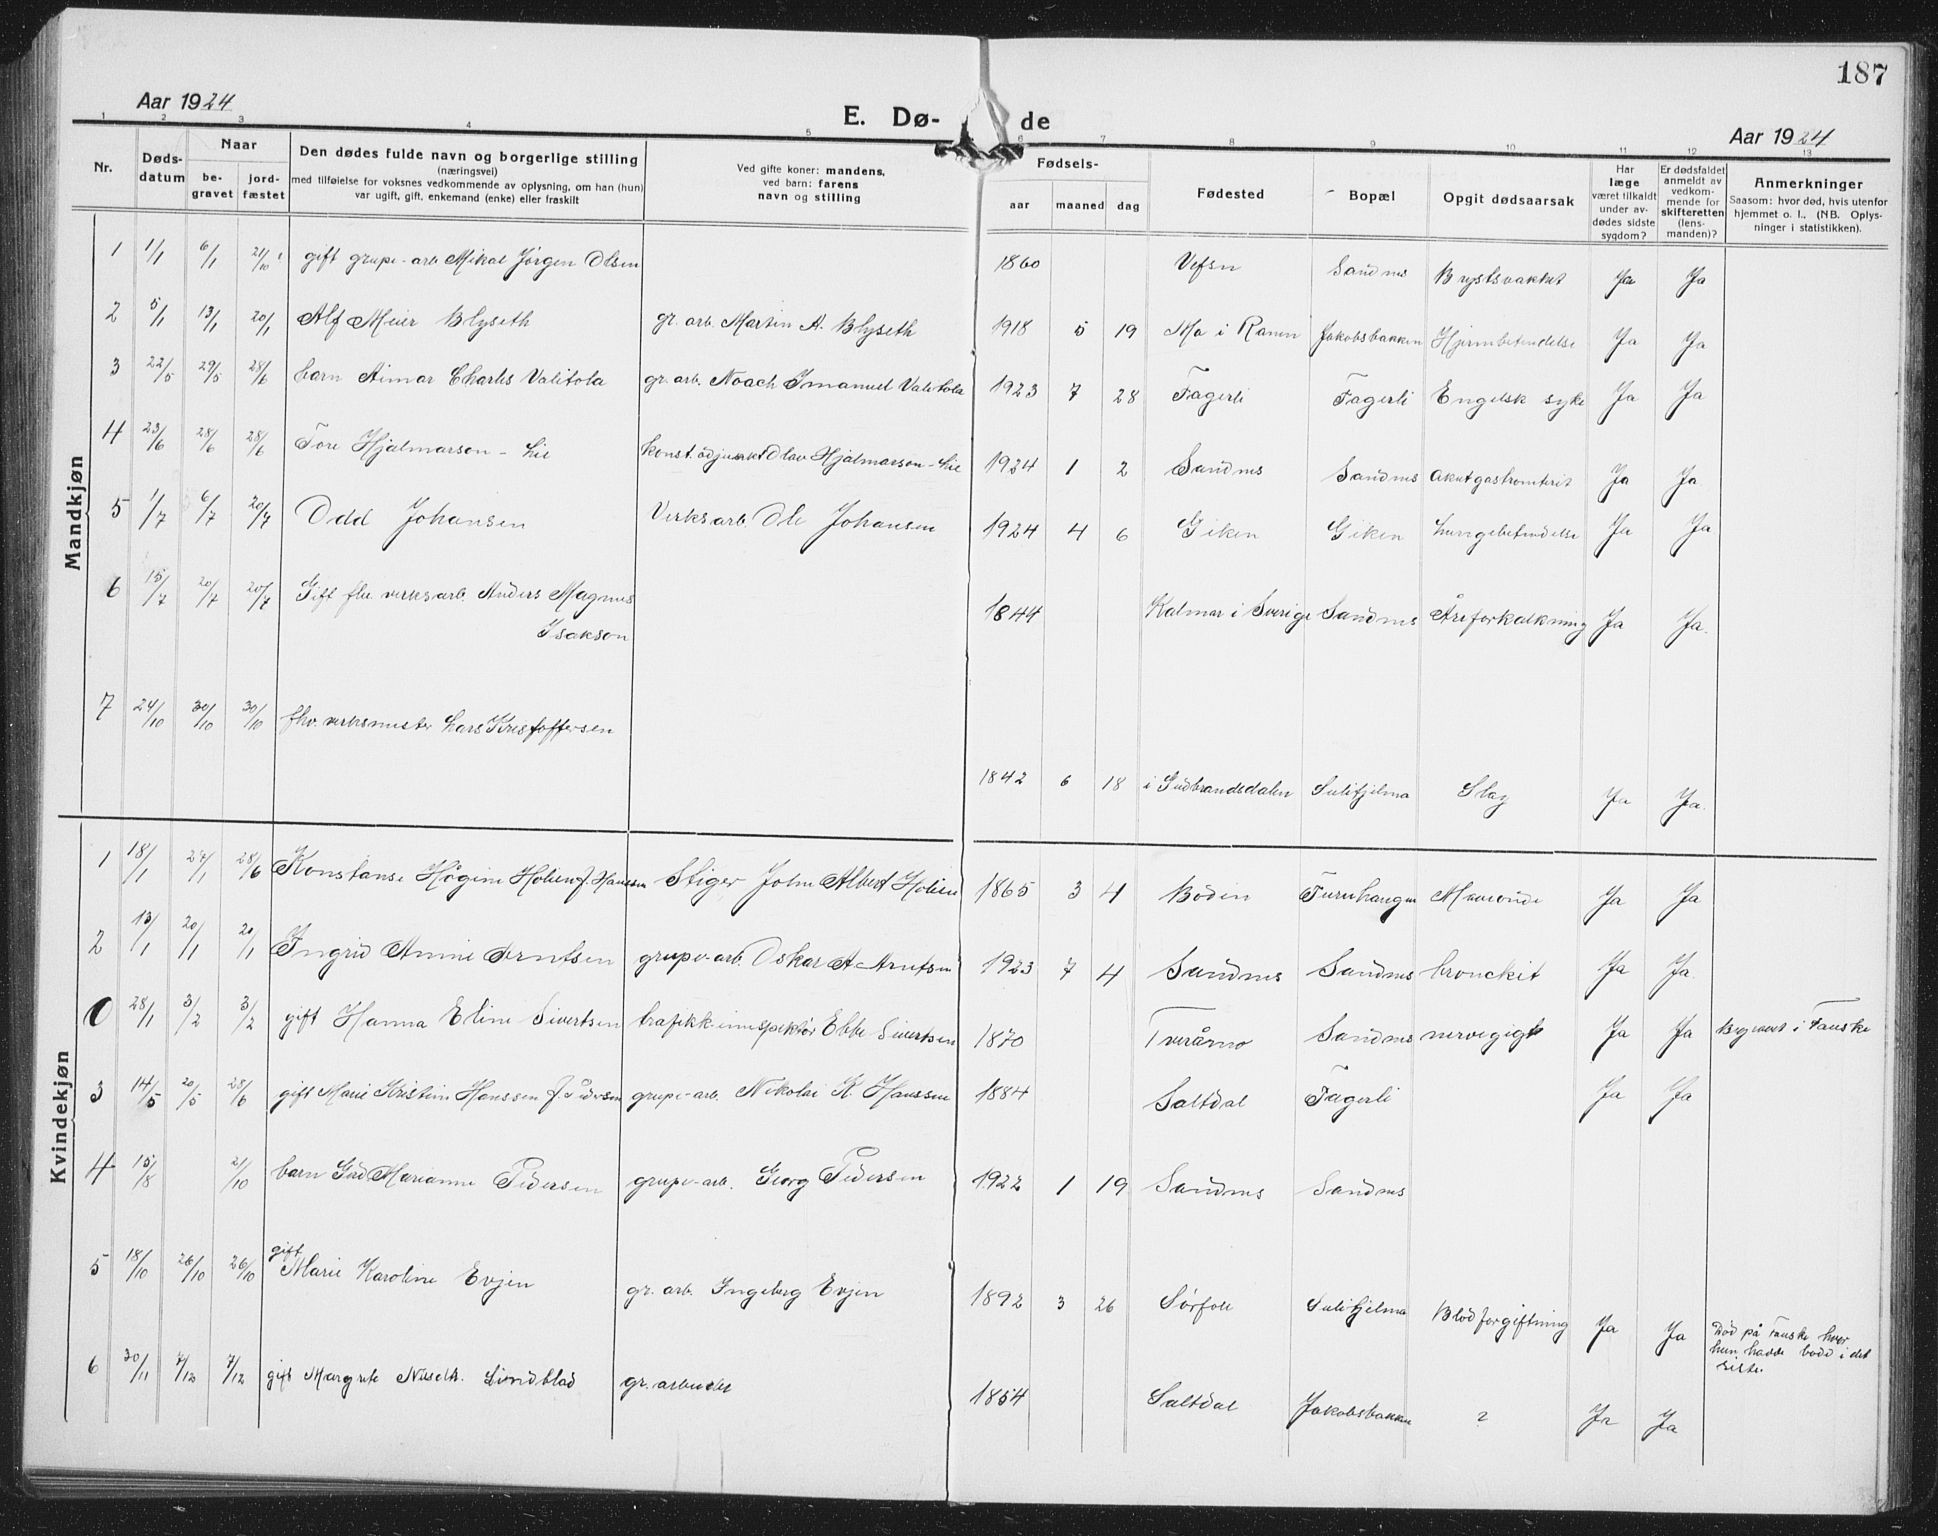 187
Aar 1924
E. Dø- de
Aar 1924
1 2 3 4 5 6 7 8 9 10 11 12 13
Nr.
Døds-datum
Naar
be-gravet
jord-fæstet
Den dødes fulde navn og borgerlige stilling
(næringsvei)
med tilføielse for voksnes vedkommende av oplysning, om han (hun)
var ugift, gift, enkemand (enke) eller fraskilt
Ved gifte koner: mandens,
ved barn: farens
navn og stilling
Fødsels-
aar maaned dag
Fødested
Bopæl
Opgit dødsaarsak
Har
læge
været tilkaldt
under av-
dødes sidste
sygdom?
Er dødsfaldet
anmeldt av
vedkom-
mende for
skifteretten
(lens-
manden)?
Anmerkninger
Saasom: hvor død, hvis utenfor
hjemmet o. l., (NB. Oplys-
ninger i statistikken).
Mandkjøn
1 1/1 6/1 21/10 gift grupe-arb Mikal Jørgen Olsen 1860 Vefsn Sandnes Brystsvakhet Ja Ja
2 5/1 13/1 20/1 Alf Meier Blyseth gr. arb. Martin A. Blyseth 1918 5 19 Mo i Ranen Jakobsbakken Hjernebetendelse Ja Ja
3 22/5 29/5 28/6 barn Aimar Charles Valitola gr. arb. Noach Imanuel Valitola 1923 7 28 Fagerli Fagerli Engelsk syke Ja Ja
4 23/6 28/6 28/6 Tore Hjalmarson - Lie konst. adjunkt Olav Hjalmarson - Lie 1924 1 2 Sandnes Sandnes Akut gastroenterit Ja Ja
5 1/7 6/7 20/7 Odd Johansen Verksarb. Ole Johansen 1924 4 6 Giken Giken Lungebetendelse Ja Ja
6 15/7 20/7 20/7 Gift fhv verksarb. Anders Magnus 1844 Kalmar i Sverige Sandnes Åreforkalkning Ja Ja.
Isakson
7 24/10 30/10 30/10 fhv. verksmester Lars Kristoffersen
1842 6 18 i Gudbrandsdalen Sulitjelma Slag Ja Ja.
Kvindekjøn
1 18/1 27/1 28/6 Konstanse Hågine Holien f. Hanssen Stiger John Albert Holien 1865 3 4 Bodin Furuhaugen Mavesonde Ja Ja
2 13/1 20/1 20/1 Ingrid Annie Arntsen grupe-arb. Oskar A. Arntsen 1923 7 4 Sandnes Sandnes bronckit Ja Ja
0 28/1 3/2 3/2 gift Hanna Eline Sivertsen trafikk-innspektør Ebbe Sivertsen 1870 Tverånes Sandnes nervegigt Ja Ja Begravet i Fauske
3 14/5 20/5 28/6 gift Marie Kristine Hanssen f. Pedersen grupe-arb. Nikolai K. Hanssen 1884 Saltdal Fagerli Ja Ja
4 15/8 21/10 barn Gud Marianne Pedersen grupe-arb. Georg Pedersen 1922 1 19 Sandnes Sandnes
5 18/10 26/10 26/10 gift Marie Karoline Evjen gr. arb. Ingeberg Evjen 1892 3 26 Sørfoll Sulitjelma Blodforgiftning Ja Ja Død på Fauske hvor
hun hadde bodd i det
siste.
6 30/11 7/12 7/12 gift Margrete Nilsdtr. Lindblad gr. arbeider 1854 Saltdal Jakobsbakken ? Ja Ja